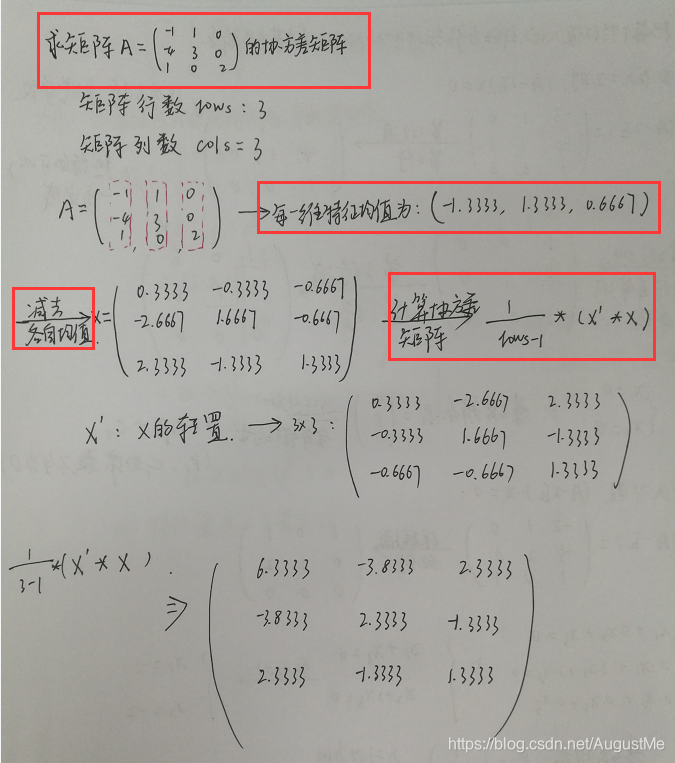 求矩阵 A = ( -1 1 0
-4 3 0
1 0 2 ) 的协方差矩阵
矩阵行数 rows : 3
矩阵列数 cols = 3
A = ( -1 1 0
-4 3 0
1 , 0 , 2 ) → 每一维特征均值为: (-1.3333, 1.3333, 0.6667)
减去
各自均值.
X = ( 0.3333 -0.3333 -0.6667
-2.6667 1.6667 -0.6667
2.3333 -1.3333 1.3333 )
计算协方差
矩阵
1 / rows-1 * (X' * X)
X' : X的转置. → 3x3 :
( 0.3333 -2.6667 2.3333
-0.3333 1.6667 -1.3333
-0.6667 -0.6667 1.3333 )
1 / 3-1 * (X' * X ) .
⇒
( 6.3333 -3.8333 2.3333
-3.8333 2.3333 -1.3333
2.3333 -1.3333 1.3333 )
https://blog.csdn.net/AugustMe